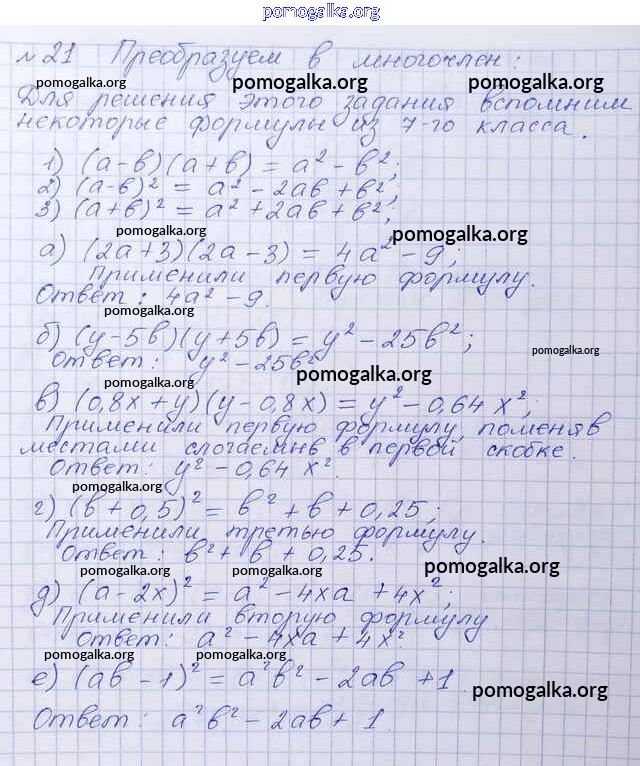 pomogalka.org
№21 Преобразуем в многочлен:
pomogalka.org pomogalka.org pomogalka.org
Для решения этого задания вспомним
некоторые формулы из 7-го класса.
1) (a-b)(a+b) = a² - b²;
2) (a-b)² = a² - 2ab + b²;
3) (a+b)² = a² + 2ab + b²;
pomogalka.org pomogalka.org
а) (2a+3)(2a-3) = 4a² - 9;
Применили первую формулу.
Ответ: 4a² - 9.
pomogalka.org
б) (y-5b)(y+5b) = y² - 25b²;
pomogalka.org
Ответ: y² - 25b²
pomogalka.org pomogalka.org
в) (0,8x+y)(y-0,8x) = y² - 0,64x²;
Применили первую формулу, поменяв
местами слогаемыв в первой скобке.
Ответ: y² - 0,64x².
pomogalka.org
г) (b+0,5)² = b² + b + 0,25;
Применили третью формулу.
Ответ: b² + b + 0,25.
pomogalka.org pomogalka.org pomogalka.org
д) (a-2x)² = a² - 4xa + 4x²;
Применили вторую формулу
Ответ: a² - 4xa + 4x².
pomogalka.org pomogalka.org
е) (ab-1)² = a²b² - 2ab + 1
pomogalka.org
Ответ: a²b² - 2ab + 1